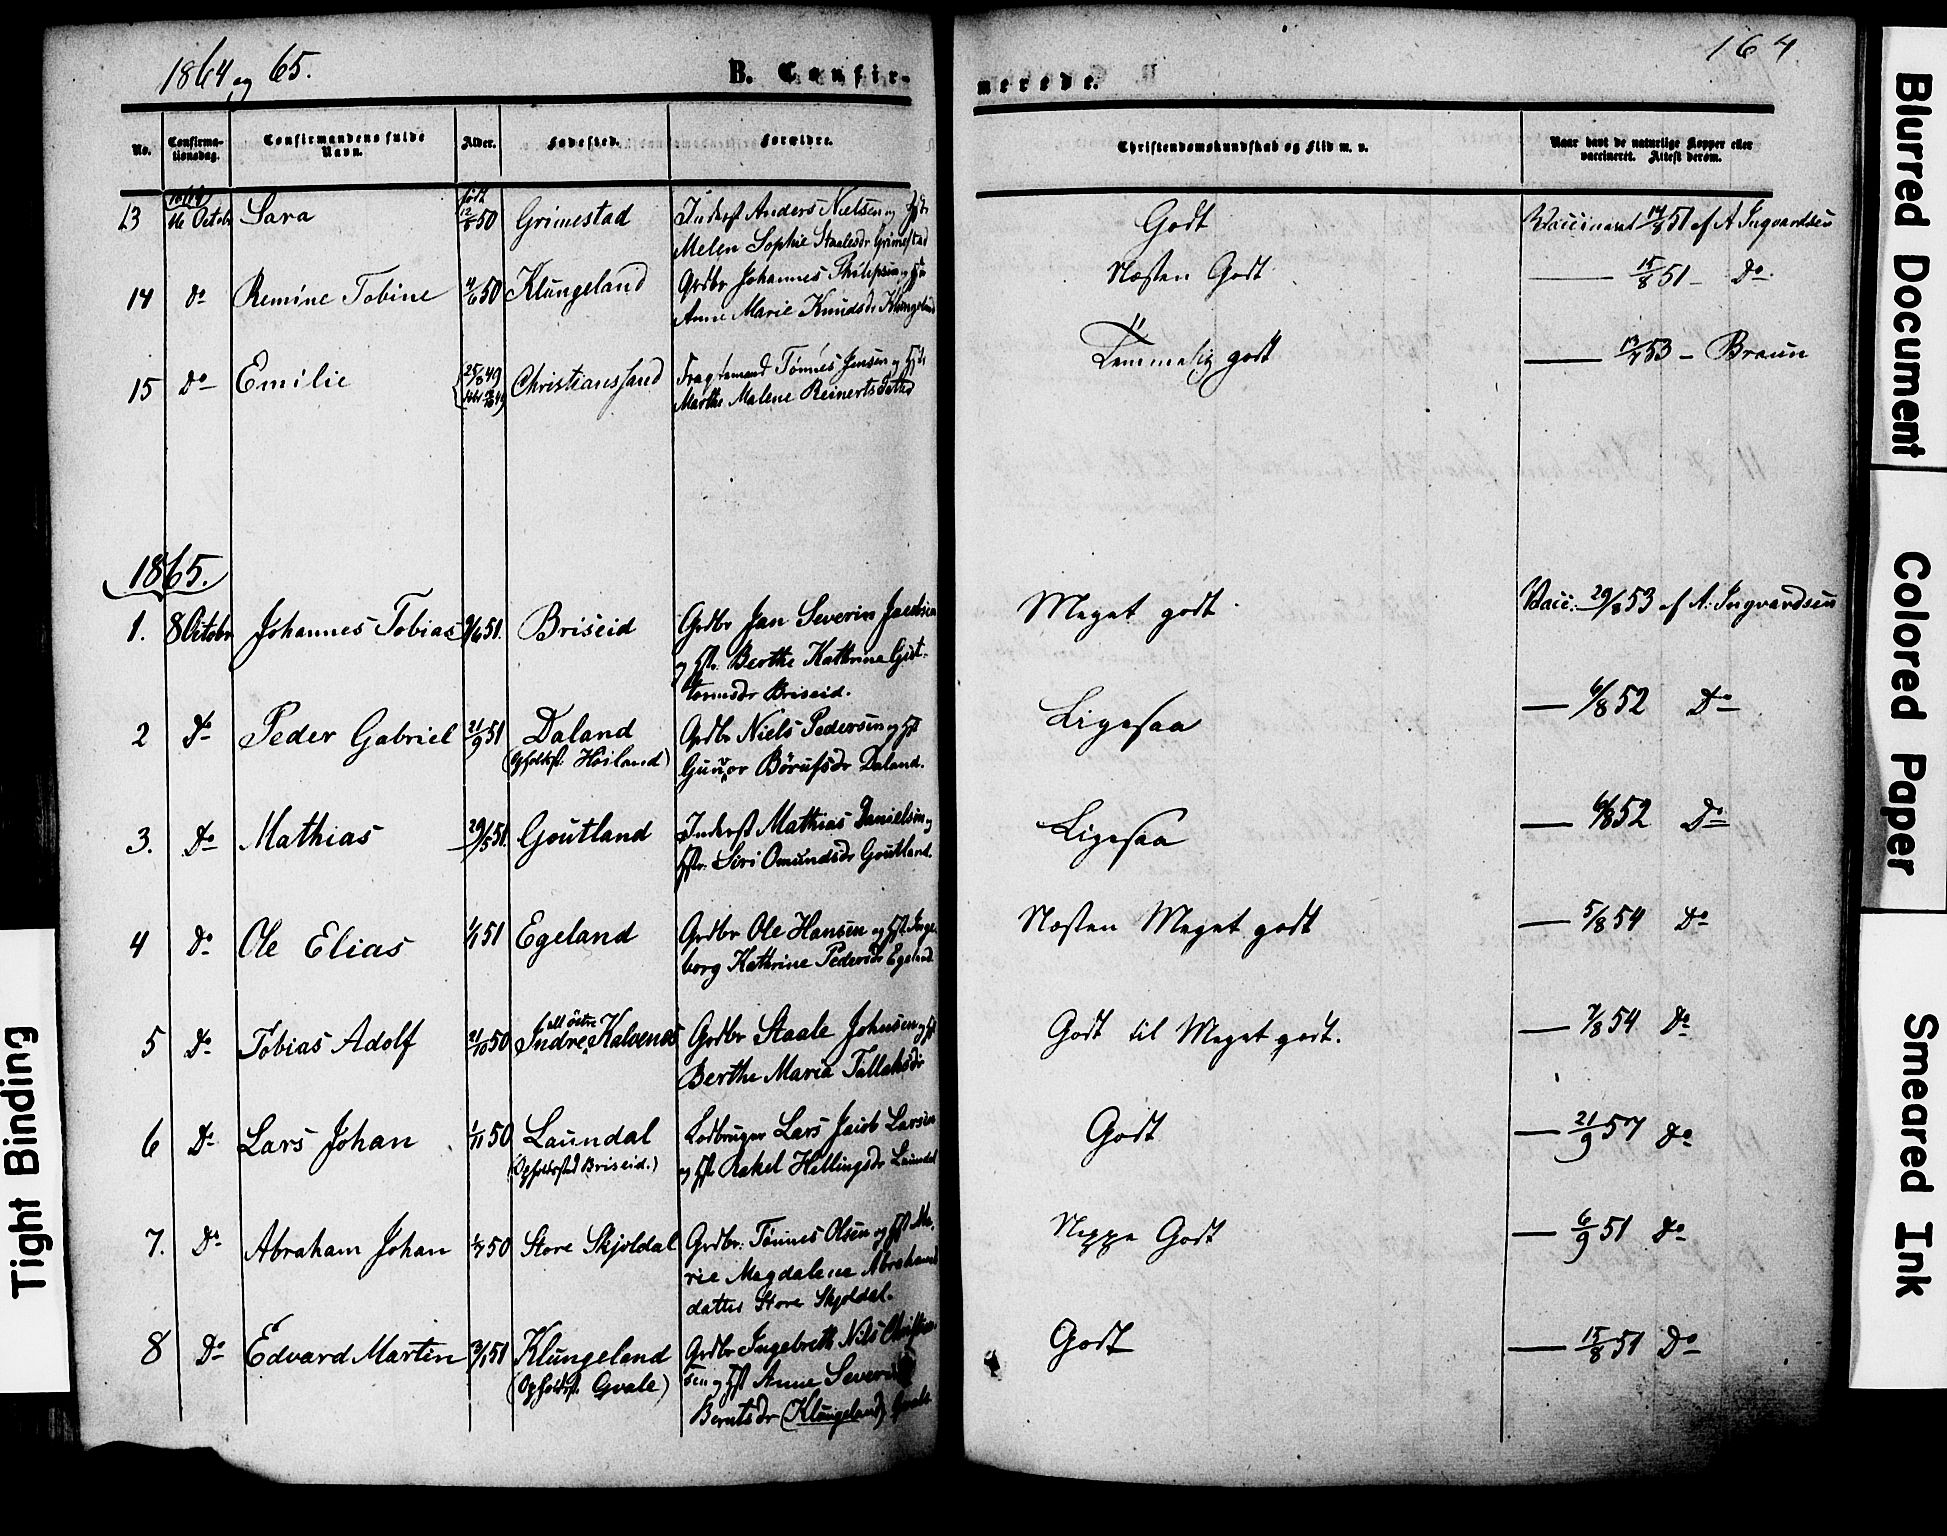 1864 og 65.
B. Confir-
merede.
164.
No.
Confirma-
tionsdag.
Confirmandens fulde
Navn.
Alder.
Fødested.
Forældre.
Christendomskundskab og Flid m. v.
Naar havt de naturlige Kopper eller
vaccineret. Attest derom.
13 16 Octobr Sara født 12/6 50 Grimestad Inderst Anders Nielsen og Hst
Melen Sophie Staalesdr Grimestad
Godt
Vaccineret 14/8 51 af A Ingvardsen
14 Do Remine Tobine 4/6 50 Klungeland Grdbr Johannes Philipsen og Hst
Anne Marie Knudsdr Klungeland
Næsten Godt
15/8 51 - Do
15 Do Emilie 25/8 49 Christianssand Fragtemand Tønnes Jensen og Hst
Marthe Malene Reinertsdatter
Temmelig godt
53 - Braun
1865.
1. 8 Octobr Johannes Tobias 51. Briseid Grdbr Jan Severin Jacobsen
og Hst. Berthe Kathrine Gut-
tormsdr Briseid.
Meget godt
Vacc. 29/8 53 af A. Ingvardsen
2 Do Peder Gabriel 21/9 51 Daland Grdbr Niels Pedersen og Hst
(Opholdsst. Høiland) Gunvor Børufsdr Daland.
Ligesaa
6/8 52 Do
3. Do Mathias 29/5 51. Goutland Inderst Mathias Danielsen og
Hstr. Siri Omundsdr Goutland.
Ligesaa
6/8 52 Do
4 Do Ole Elias 51 Egeland Grdbr Ole Hansen og Hst Inge-
borg Kathrine Pedersdr Egeland
Næsten Meget godt
5/8 54 Do
5 Do Tobias Adolf 21/10 50 Indre Kalvenes Grdbr Staale Johnsen og Hst
Berthe Maria Tallaksdr
Godt til Meget godt.
7/8 54 Do
6 Do Lars Johan 1/11 50 Laundal Lodbruger Lars Jacob Larsen
(Opholdssted Briseid.) og Hst Rakel Hellingsdr Laundal
Godt
21/9 57 Do
7. Do Abraham Johan 50 Store Skjoldal Grdbr. Tønnes Olsen og Hst Ma-
rie Magdalene Abrahams
datter Store Skjoldal.
Neppe Godt
6/9 51 Do
8 Do Edvard Martin 51 Klungeland Grdbr Ingebreth Nils Christian-
(Opholdsst. Qvale) sen og Hst Anne Severine
Berntsdr (Klungeland) Qvale
Godt
15/8 51 Do
Blurred Document
Colored Paper
Smeared Ink
Tight Binding